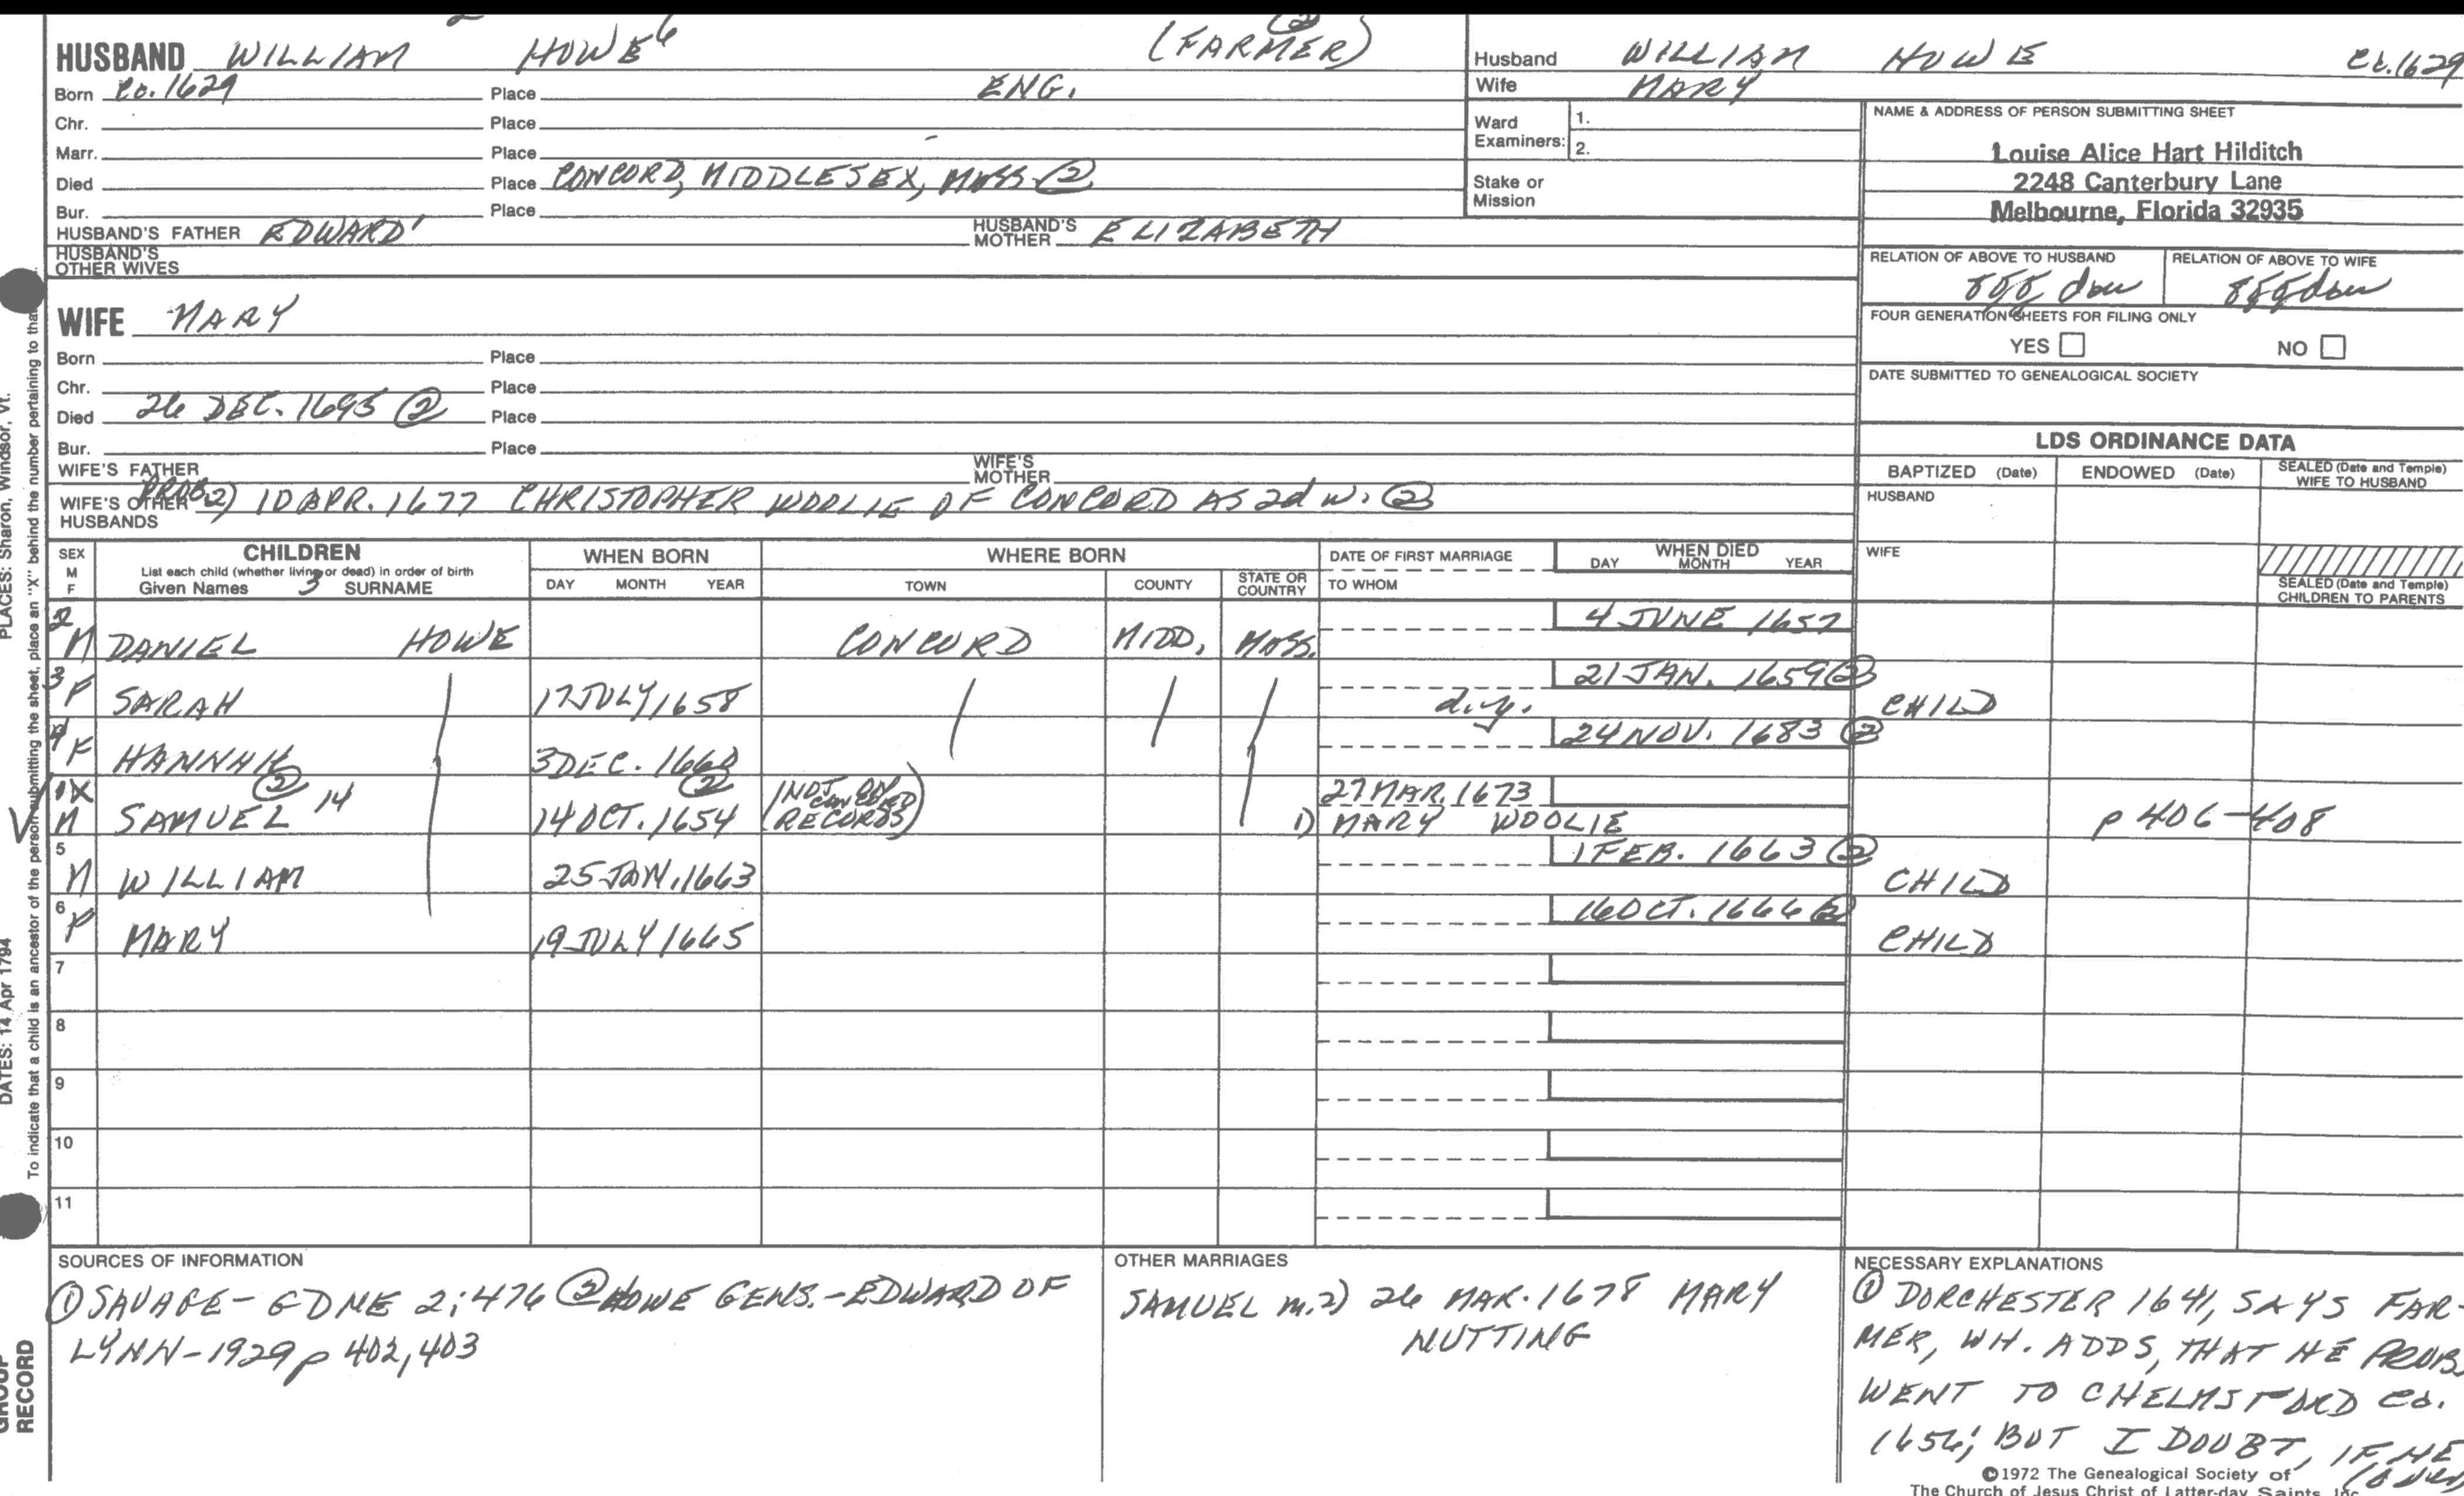 HUSBAND WILLIAM HOWE 6 (FARMER)
Born ca. 1629 Place ENG.
Chr. Place
Marr. Place
Died Place CONCORD, MIDDLESEX, MASS ②
Bur. Place
HUSBAND'S FATHER EDWARD' HUSBAND'S MOTHER ELIZABETH
HUSBAND'S OTHER WIVES
Husband WILLIAM HOWE ca. 1629
Wife MARY
Ward Examiners: 1. 2.
Stake or Mission
NAME & ADDRESS OF PERSON SUBMITTING SHEET
Louise Alice Hart Hilditch
2248 Canterbury Lane
Melbourne, Florida 32935
RELATION OF ABOVE TO HUSBAND RELATION OF ABOVE TO WIFE
FOUR GENERATION SHEETS FOR FILING ONLY
YES NO
DATE SUBMITTED TO GENEALOGICAL SOCIETY
WIFE MARY
Born Place
Chr. Place
Died 26 DEC. 1695 ② Place
Bur. Place
WIFE'S FATHER WIFE'S MOTHER
WIFE'S OTHER HUSBANDS PROB. 2) 10 APR. 1677 CHRISTOPHER WOOLIE OF CONCORD AS 2d w. ②
LDS ORDINANCE DATA
BAPTIZED (Date) ENDOWED (Date) SEALED (Date and Temple) WIFE TO HUSBAND
HUSBAND
WIFE
SEALED (Date and Temple) CHILDREN TO PARENTS
SEX M F CHILDREN WHEN BORN WHERE BORN DATE OF FIRST MARRIAGE WHEN DIED
List each child (whether living or dead) in order of birth
Given Names 3 SURNAME DAY MONTH YEAR TOWN COUNTY STATE OR COUNTRY TO WHOM DAY MONTH YEAR
2 M DANIEL HOWE CONCORD MIDD. MASS. 4 JUNE 1657
3 F SARAH 17 JULY 1658 21 JAN. 1659 ② CHILD
4 F HANNAH 3 DEC. 1660 d.y. 24 NOV. 1683 ②
1X M SAMUEL ② 14 14 OCT. 1654 ② (NOT ON CONCORD RECORDS) 27 MAR. 1673 1) MARY WOOLIE p 406-408
5 M WILLIAM 25 JAN. 1663 1 FEB. 1663 ② CHILD
6 F MARY 19 JULY 1665 16 OCT. 1666 ② CHILD
7
8
9
10
11
SOURCES OF INFORMATION
① SAVAGE - GDNE 2:476 ② HOWE GENS. - EDWARD OF
LYNN - 1929 p 402,403
OTHER MARRIAGES
SAMUEL m. 2) 26 MAR. 1678 MARY
NUTTING
NECESSARY EXPLANATIONS
① DORCHESTER 1641, SAYS FAR-
MER, WH. ADDS, THAT HE PROB.
WENT TO CHELMSFORD ca.
1656; BUT I DOUBT, IF HE
©1972 The Genealogical Society of
The Church of Jesus Christ of Latter-day Saints, Inc.
PLACES: Sharon, Windsor, Vt.
DATES: 14 Apr 1794
To indicate that a child is an ancestor of the person submitting the sheet, place an "X" behind the number pertaining to that
GROUP
RECORD